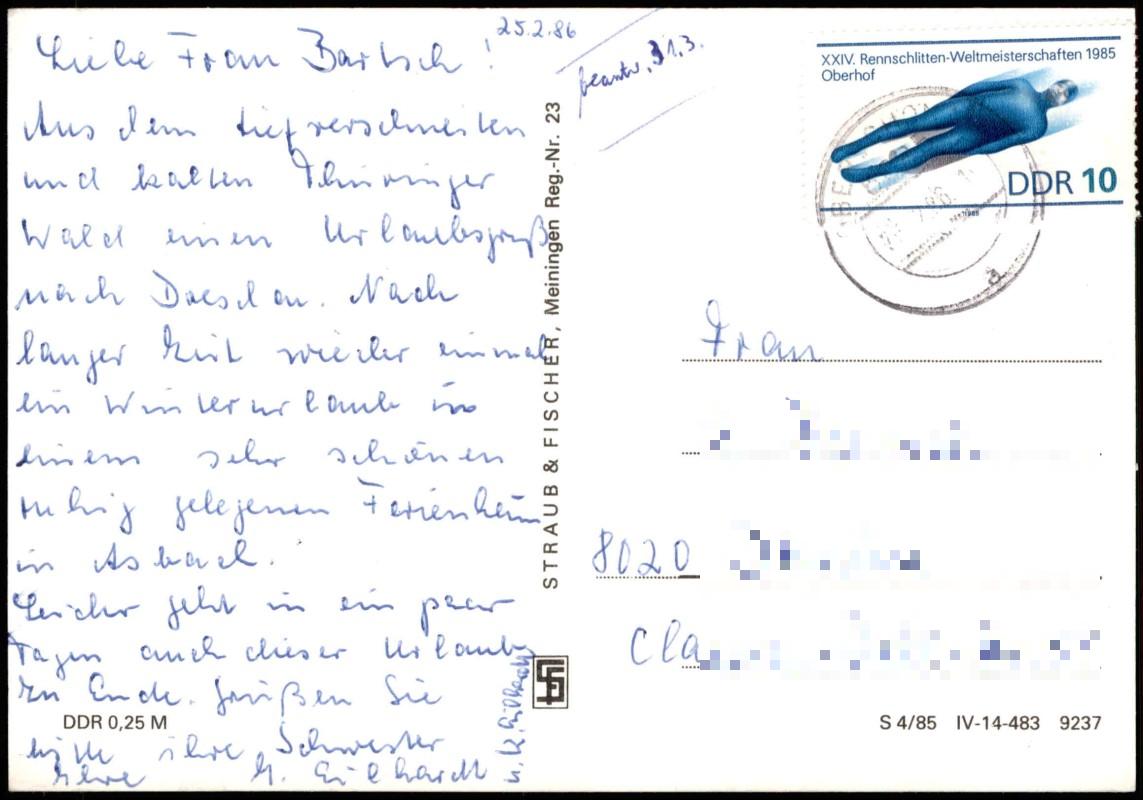 25.2.86
Liebe Frau Bartsch!
Aus dem tiefverschneiten
und kalten Thüringer
Wald einen Urlaubsgruß
nach Dresden. Nach
langer Zeit wieder einmal
ein Winterurlaub in
einem sehr schönen
ruhig gelegenen Ferienheim
in Asbach.
Leider geht in ein paar
Tagen auch dieser Urlaub
zu Ende. Grüßen Sie
bitte ihre Schwester
Ihre
beantw. 31.3.
STRAUB & FISCHER, Meiningen Reg.-Nr. 23
XXIV. Rennschlitten-Weltmeisterschaften 1985
Oberhof
DDR 10
1985
a
Frau
8020
Cla
DDR 0,25 M
S 4/85 IV-14-483 9237